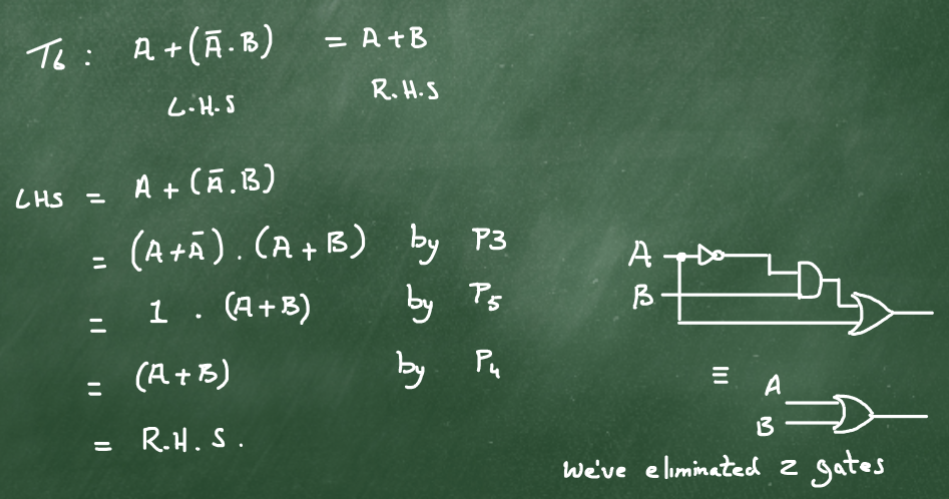 T6 : A + (Ā . B) = A + B
L.H.S R.H.S
LHS = A + (Ā . B)
= (A + Ā) . (A + B) by P3
= 1 . (A + B) by P5
= (A + B) by P4
= R.H.S.
A
B
≡
A
B
We've eliminated 2 gates